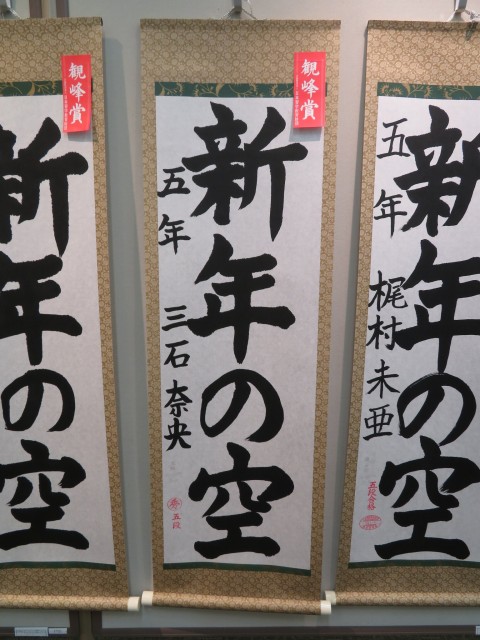 新年の空
五年 梶村未亜
五段合格
観峰賞
新年の空
五年 三石奈央
五段
観峰賞
新年の空